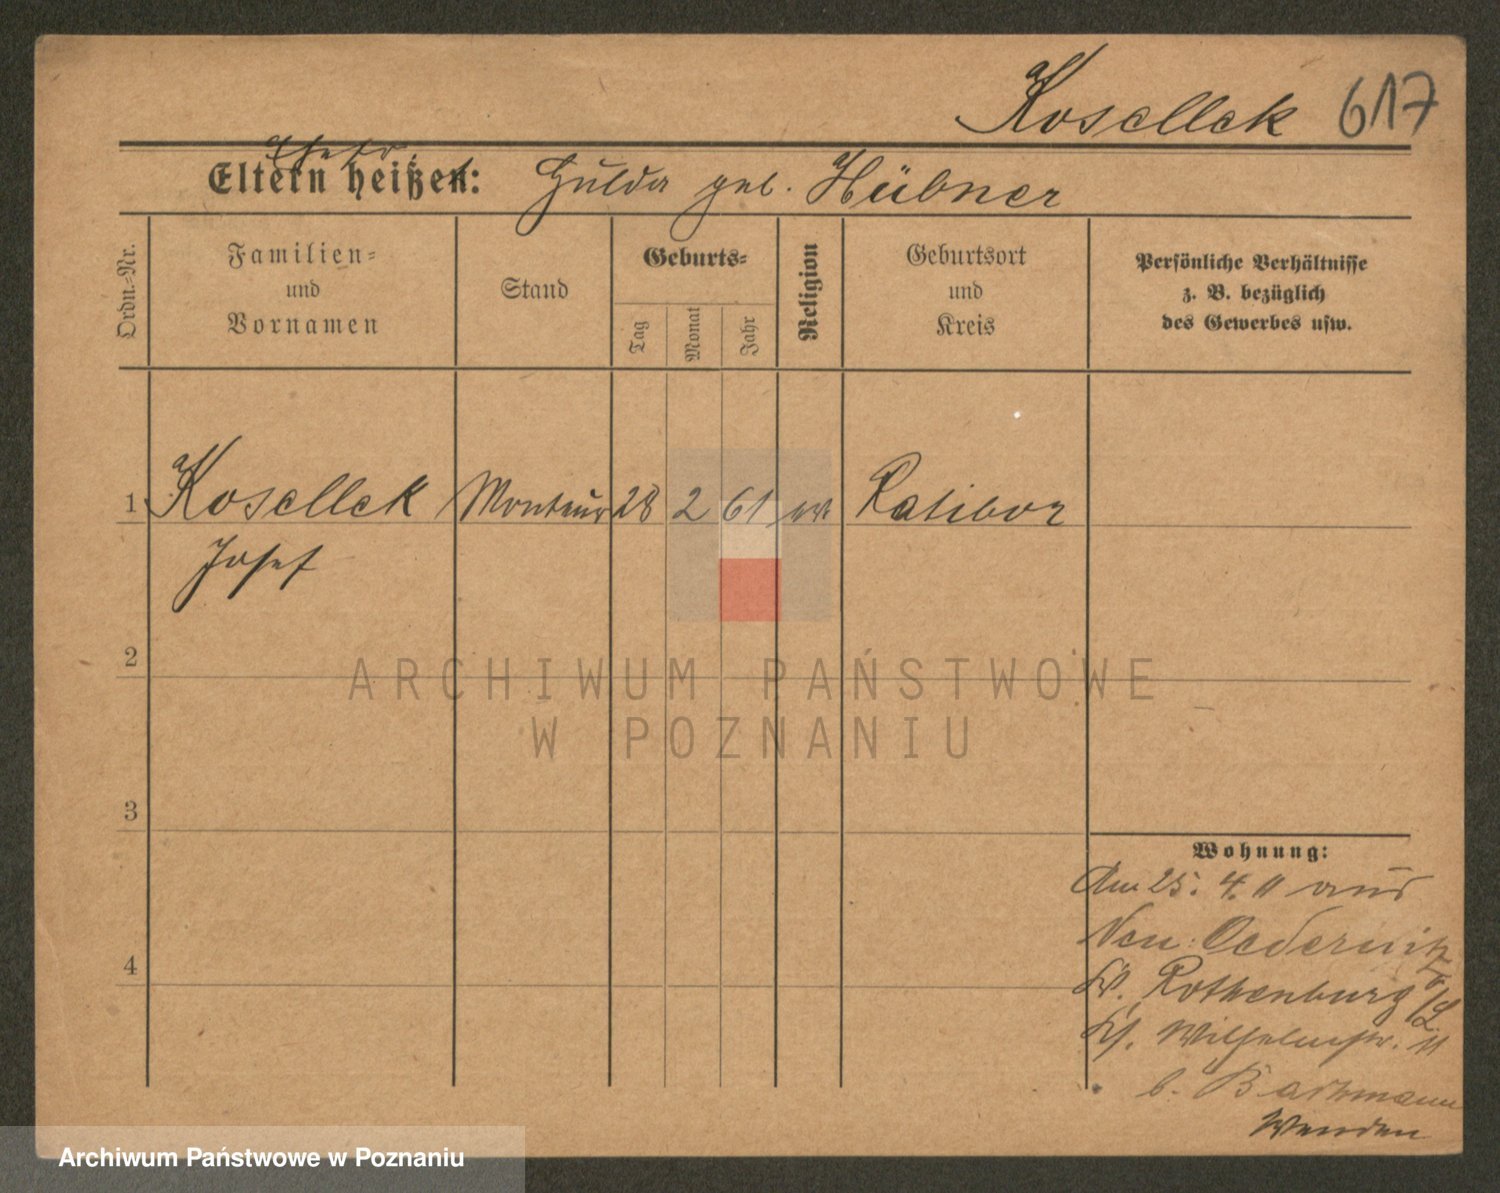 Kosellek 617
Ehefr.
Eltern heißen: Hulda geb. Hübner
Ordn.-Nr.
Familien-
und
Vornamen
Stand
Geburts-
Tag
Monat
Jahr
Religion
Geburtsort
und
Kreis
Persönliche Verhältnisse
z. B. bezüglich
des Gewerbes usw.
1 Kosellek Monteur 28 2 61 Ratibor
Josef
2
ARCHIWUM PAŃSTWOWE
W POZNANIU
3
Wohnung:
Am 25. 4. 11 aus
Neu: Oedernitz
Kr. Rothenburg O/L
Wilhelmstr. 11
b. Bachmann
4
Archiwum Państwowe w Poznaniu